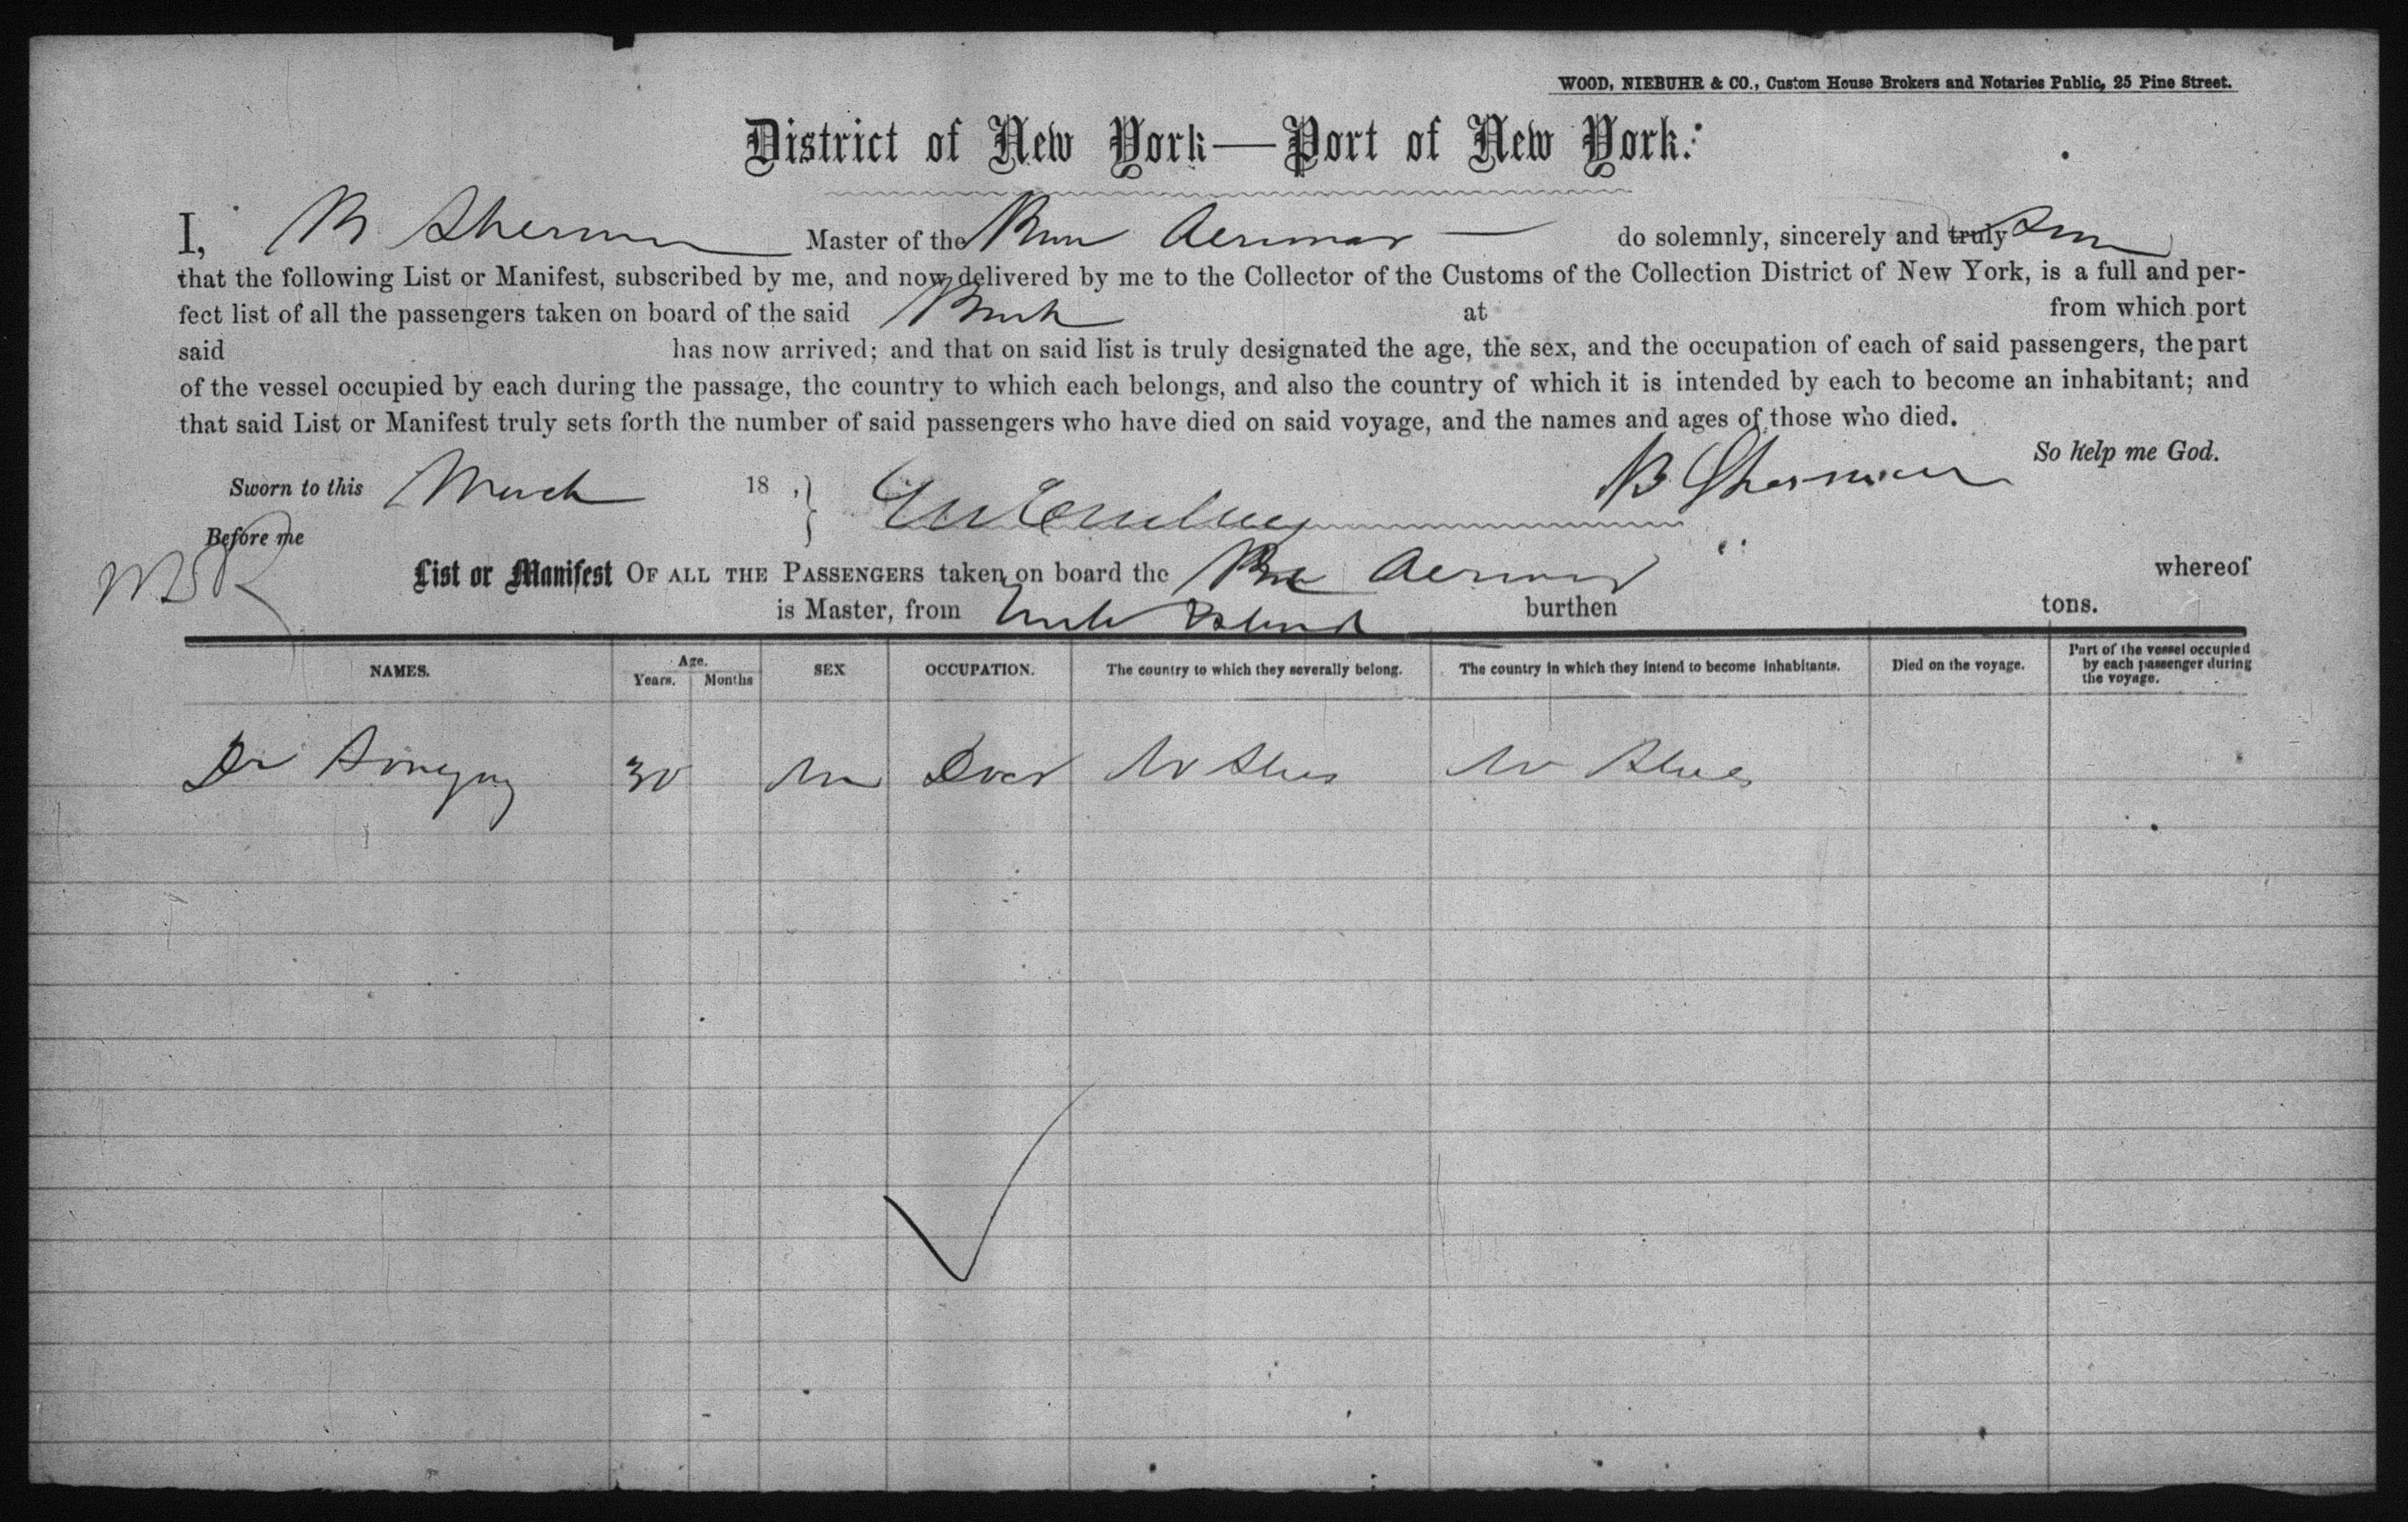 WOOD, NIEBUHR & CO., Custom House Brokers and Notaries Public, 25 Pine Street.
District of New York—Port of New York.
I, B Sherman Master of the do solemnly, sincerely and truly
that the following List or Manifest, subscribed by me, and now delivered by me to the Collector of the Customs of the Collection District of New York, is a full and per-
fect list of all the passengers taken on board of the said at from which port
said has now arrived; and that on said list is truly designated the age, the sex, and the occupation of each of said passengers, the part
of the vessel occupied by each during the passage, the country to which each belongs, and also the country of which it is intended by each to become an inhabitant; and
that said List or Manifest truly sets forth the number of said passengers who have died on said voyage, and the names and ages of those who died.
So help me God.
Sworn to this March 18 , B Sherman
Before me
List or Manifest OF ALL THE PASSENGERS taken on board the whereof
is Master, from Island burthen tons.
NAMES. Age. Years. Months SEX OCCUPATION. The country to which they severally belong. The country in which they intend to become inhabitants. Died on the voyage. Part of the vessel occupied by each passenger during the voyage.
Dr 30 M